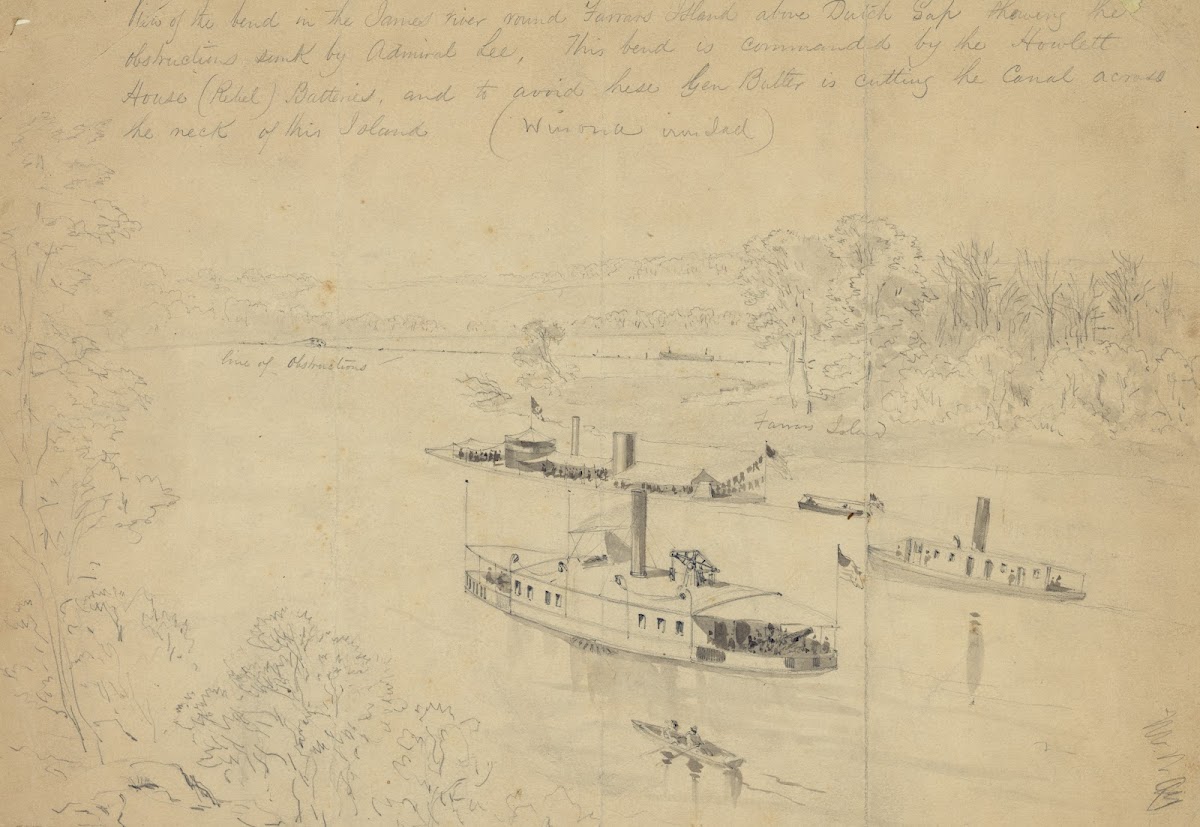 View of the bend in the James river round Farrars Island above Dutch Gap showing the
obstructions sunk by Admiral Lee, This bend is commanded by the Howlett
House (Rebel) Batteries, and to avoid these Gen Butler is cutting the Canal across
the neck of this Island (Winona ironclad)
line of Obstructions
Farrars Island